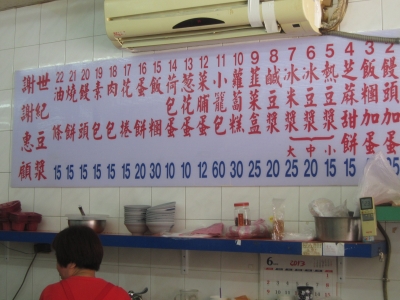 2 饅頭加蛋
3 飯糰加蛋
4 芝麻甜餅 20
5 熱豆漿 小 15
6 冰豆漿 中 20
7 冰米漿 大 25
8 鹹豆漿 20
9 韭菜盒 25
10 蘿蔔糕 30
11 小籠包 60
12 菜脯蛋
13 蔥花蛋
14 荷包蛋 10
15 飯糰 30
16 蛋餅 20
17 花捲 15
18 肉包 15
19 素包 15
20 饅頭 15
21 燒餅 15
22 油條 15
世紀豆漿
謝謝惠顧
6
2013